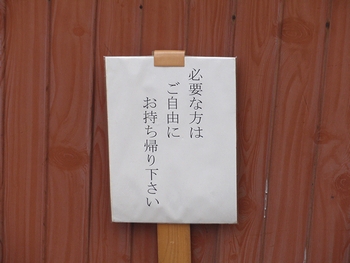 必要な方は
ご自由に
お持ち帰り下さい